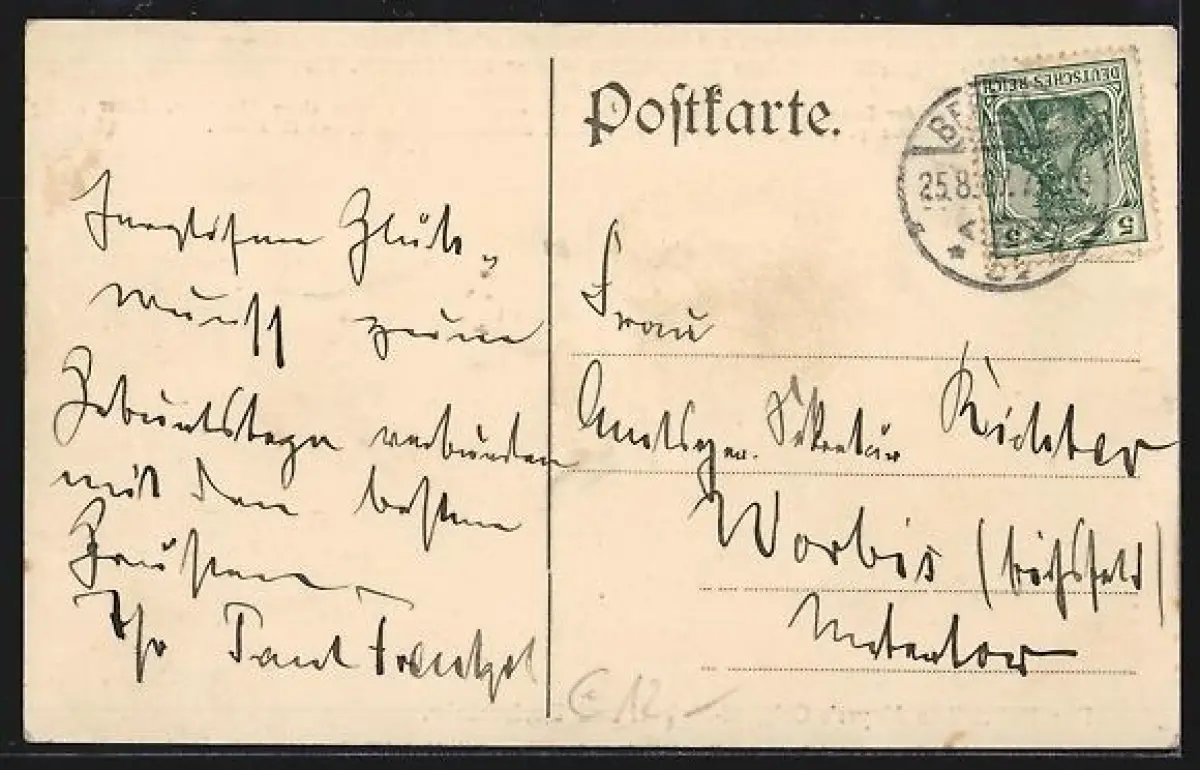 Postkarte.
DEUTSCHES REICH
5 5
BE
25.8.
Herzlichen Glück-
wunsch zum
Geburtstage verbunden
mit den besten
Grüßen
Ihr Paul Frentzel
Frau
Amtsger. Sekretär Richter
Worbis (Eichsfeld)
Untertor
€ 12,-